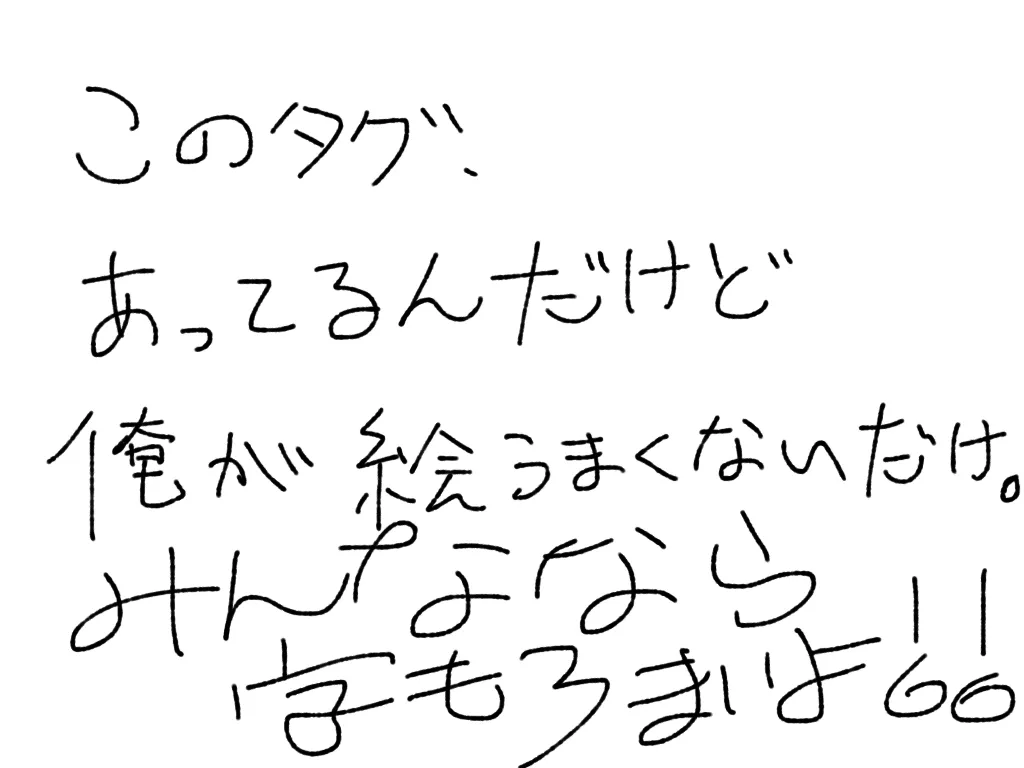 このタグ、
あってるんだけど
俺が絵うまくないだけ。
みんなよなら
字もうまいよ!!